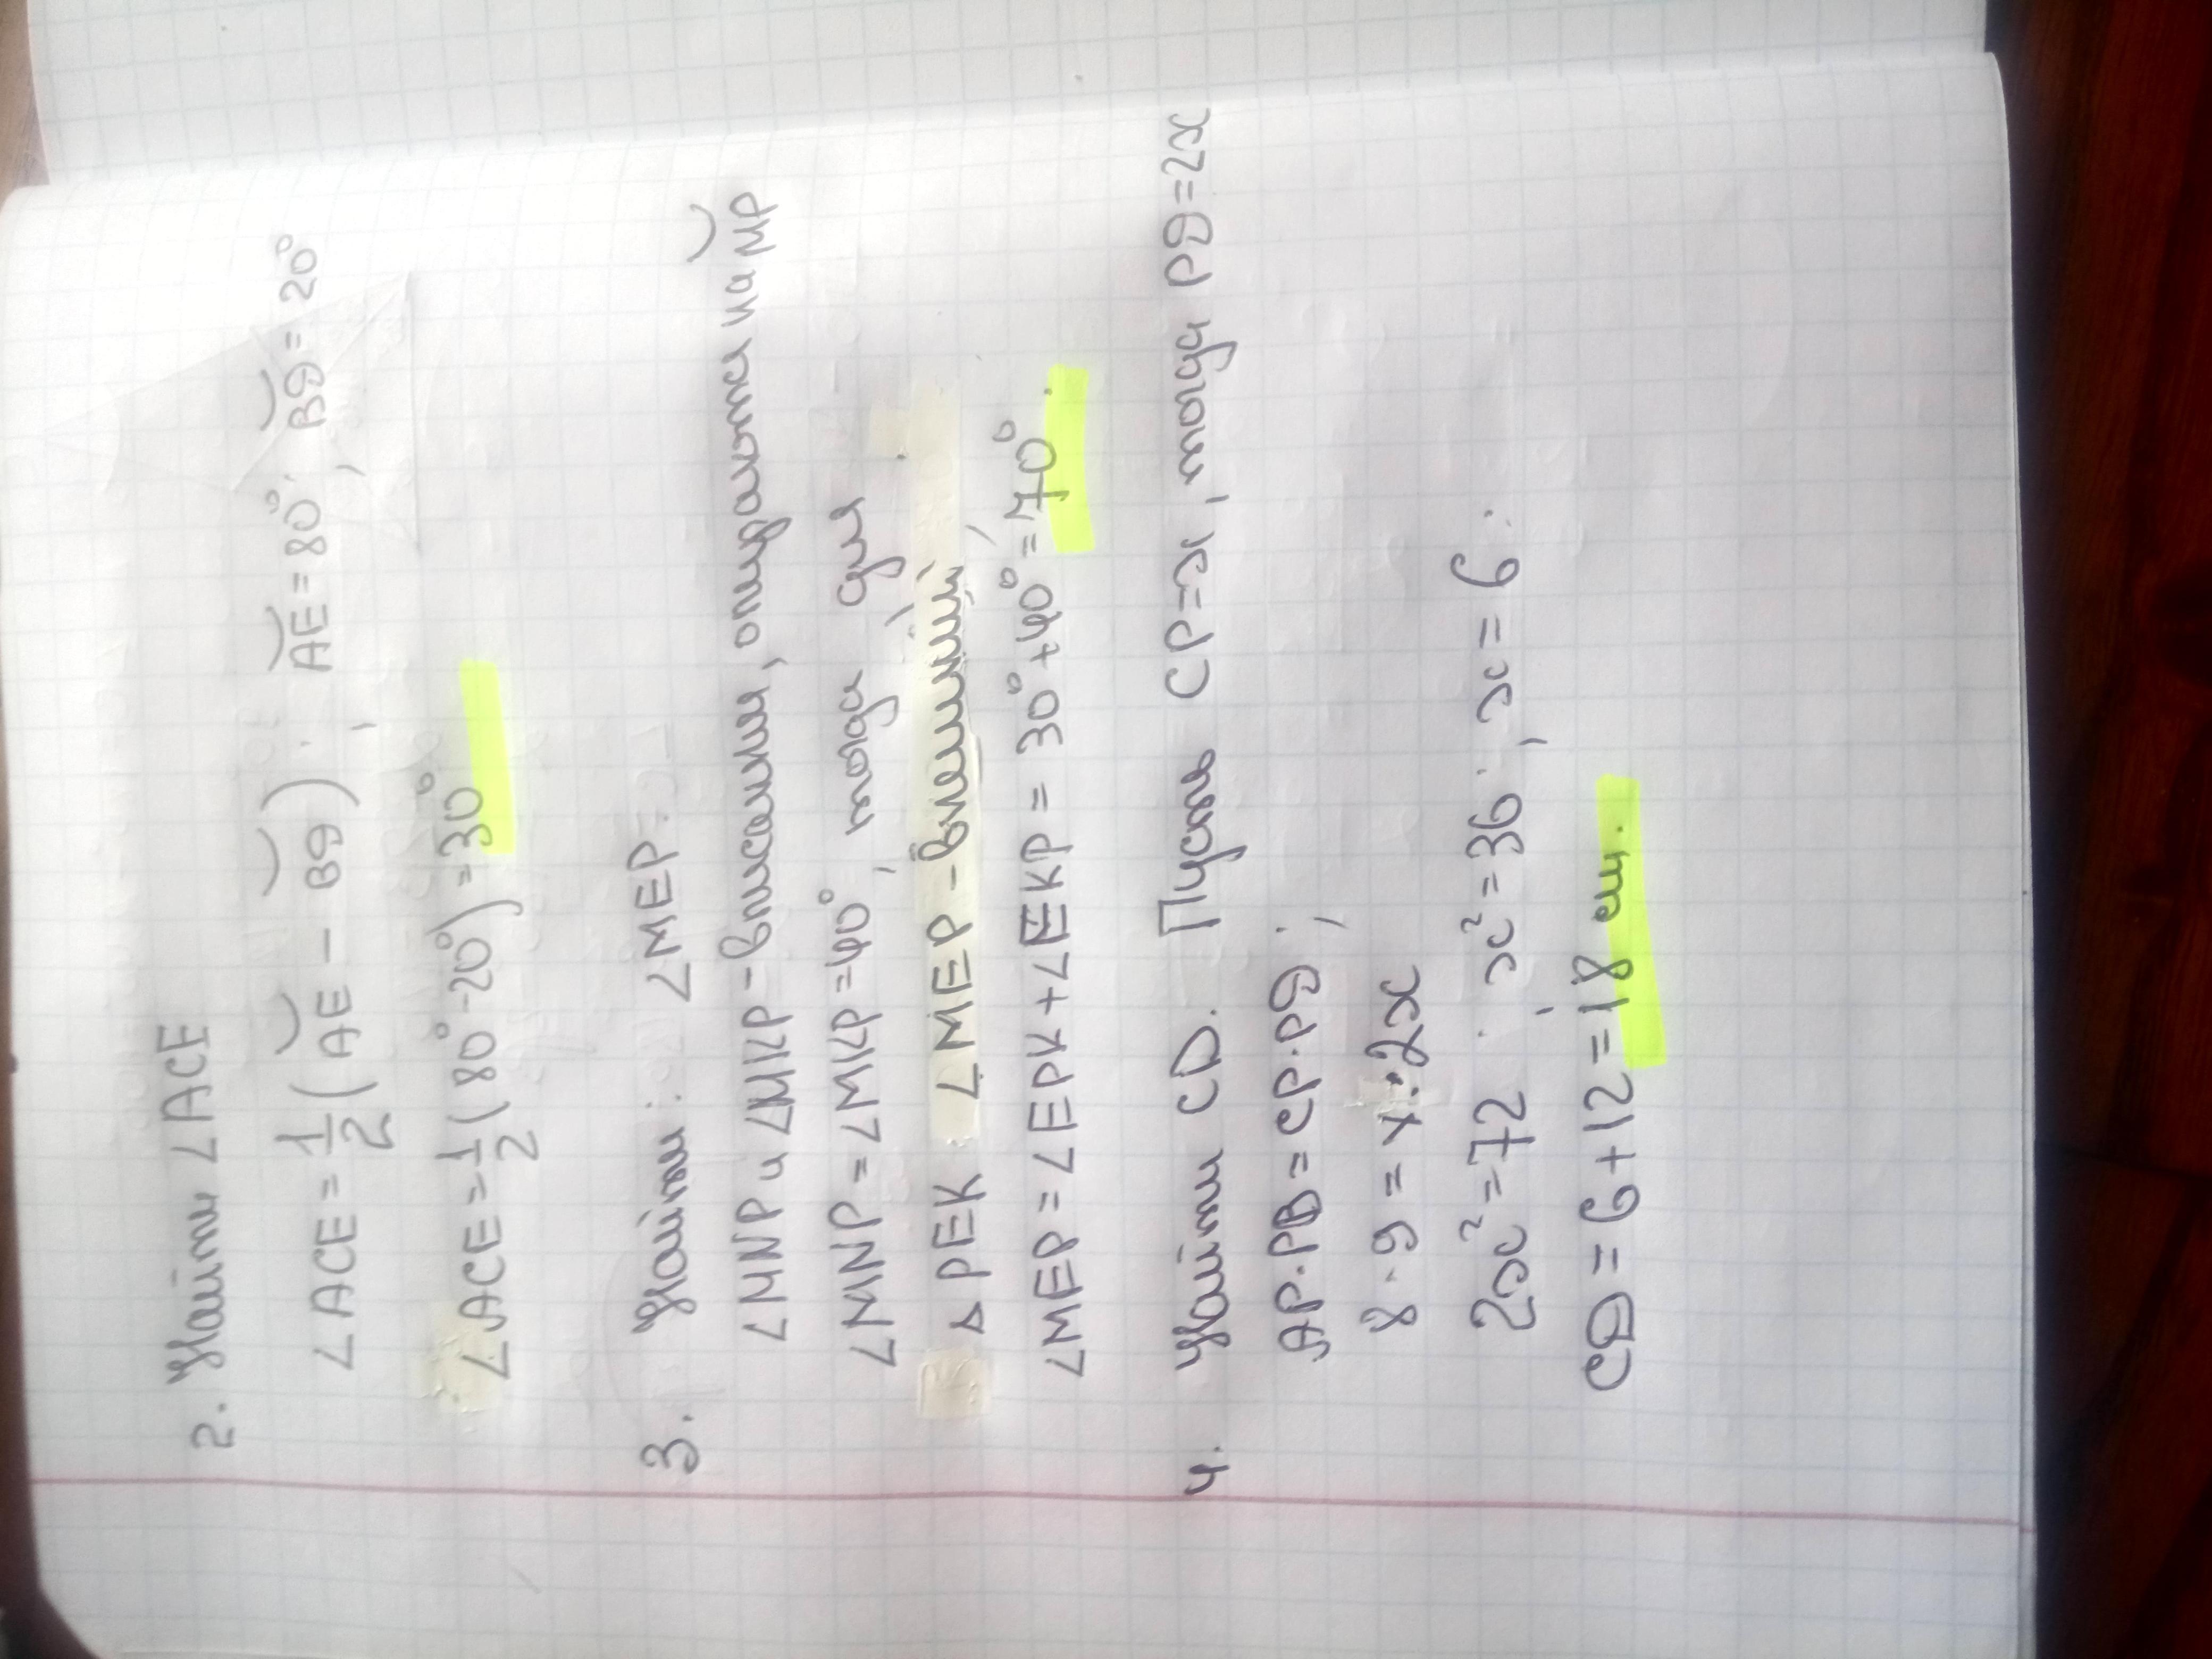 2. Найти ∠ACE
∠ACE = 1/2 (A͡E − B͡D); A͡E = 80°; B͡D = 20°
∠ACE = 1/2 (80° - 20°) = 30°
3. Найти: ∠MEP.
∠MNP и ∠MKP - вписанны, опираются на M͡P
∠MNP = ∠MKP = 40°, тогда для
△ PEK ∠MEP - внешний,
∠MEP = ∠EPK + ∠EKP = 30° + 40° = 70°.
4. Найти CD. Пусть CP = x, тогда PD = 2x
AP · PB = CP · PD;
8 · 9 = x · 2x
2x² = 72; x² = 36; x = 6.
CD = 6 + 12 = 18 см.